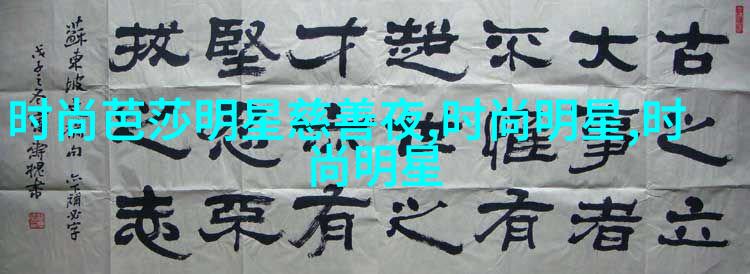 时尚芭莎明星慈善夜,时尚明星,时
尚明星
古之立
大事者
不惟有
超世之
才亦有
堅忍不
拔之志
蘇東坡句 下補必字
戊子之冬書